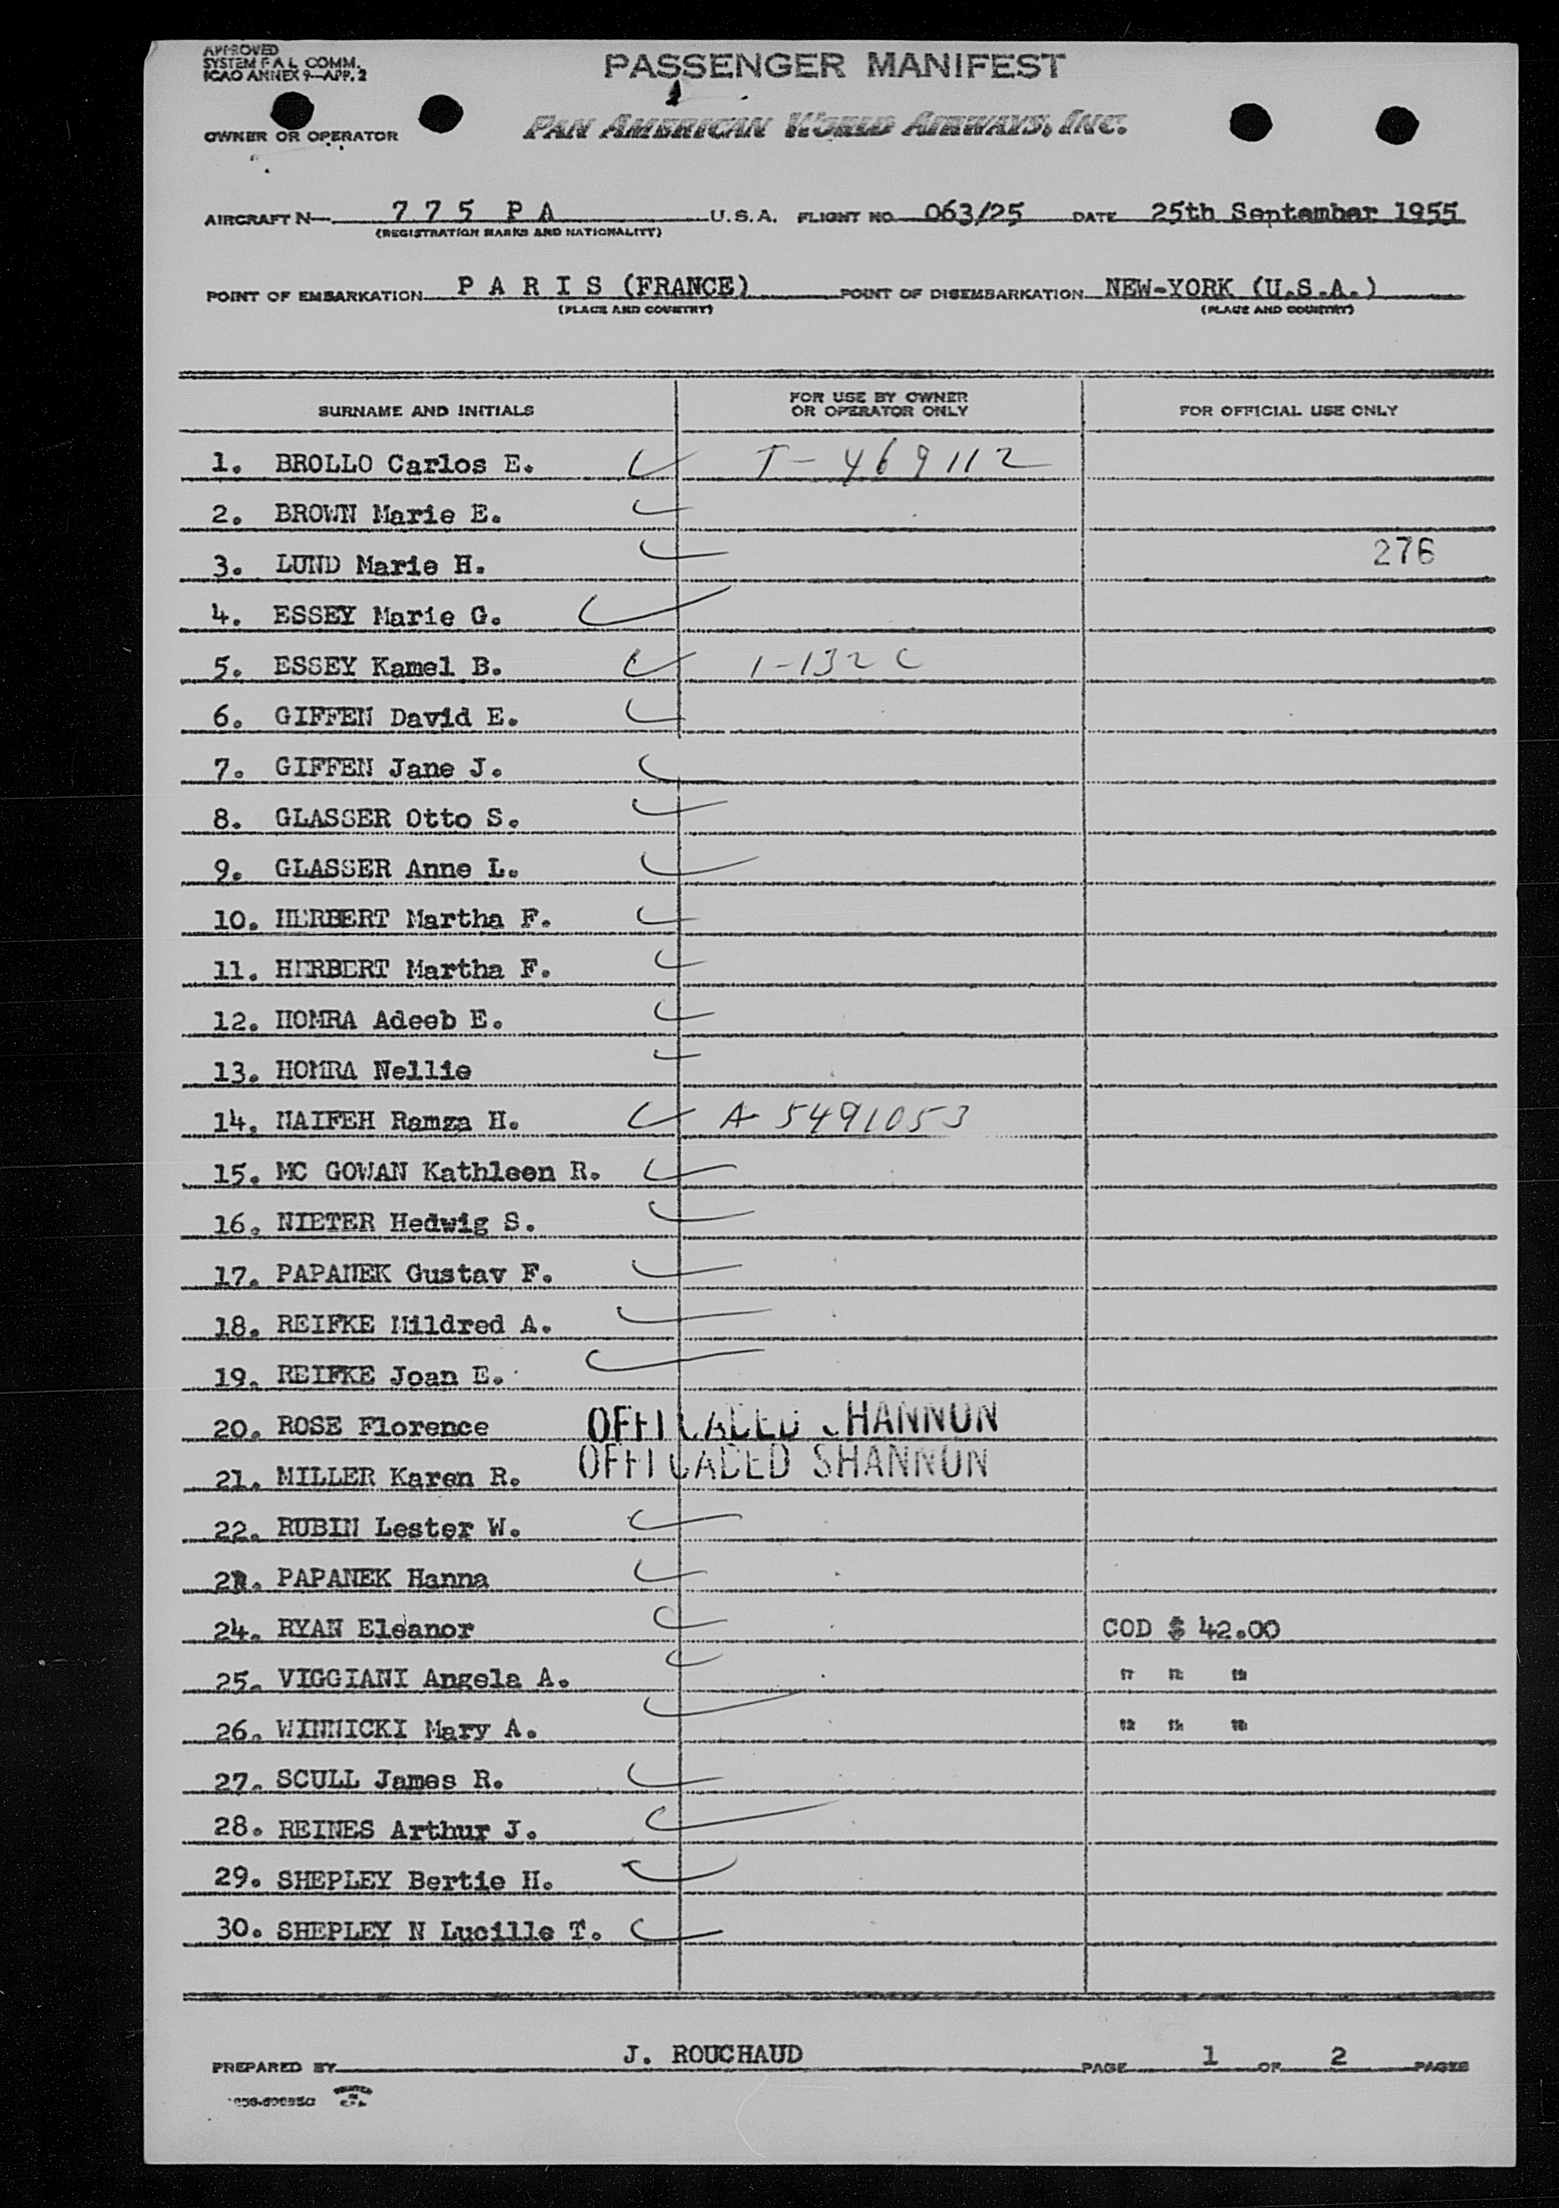 APPROVED
SYSTEM F A L COMM.
ICAO ANNEX 9-APP. 2
PASSENGER MANIFEST
OWNER OR OPERATOR
PAN AMERICAN WORLD AIRWAYS, INC.
AIRCRAFT N- 7 7 5 P A U.S.A. FLIGHT NO. 063/25 DATE 25th September 1955
(REGISTRATION MARKS AND NATIONALITY)
POINT OF EMBARKATION P A R I S (FRANCE) POINT OF DISEMBARKATION NEW-YORK (U.S.A.)
(PLACE AND COUNTRY) (PLACE AND COUNTRY)
SURNAME AND INITIALS FOR USE BY OWNER OR OPERATOR ONLY FOR OFFICIAL USE ONLY
1. BROLLO Carlos E. T-469112
2. BROWN Marie E.
3. LUND Marie H. 276
4. ESSEY Marie G.
5. ESSEY Kamel B. 1-132 C
6. GIFFEN David E.
7. GIFFEN Jane J.
8. GLASSER Otto S.
9. GLASSER Anne L.
10. HERBERT Martha F.
11. HERBERT Martha F.
12. HOMRA Adeeb E.
13. HOMRA Nellie
14. NAIFEH Ramza H. A-5491053
15. MC GOWAN Kathleen R.
16. NIETER Hedwig S.
17. PAPANEK Gustav F.
18. REIFKE Mildred A.
19. REIFKE Joan E.
20. ROSE Florence OFFLOADED SHANNON
21. MILLER Karen R. OFFLOADED SHANNON
22. RUBIN Lester W.
23. PAPANEK Hanna
24. RYAN Eleanor COD $ 42.00
25. VIGGIANI Angela A. " " "
26. WINNICKI Mary A. " " "
27. SCULL James R.
28. REINES Arthur J.
29. SHEPLEY Bertie H.
30. SHEPLEY N Lucille T.
PREPARED BY J. ROUCHAUD PAGE 1 OF 2 PAGES